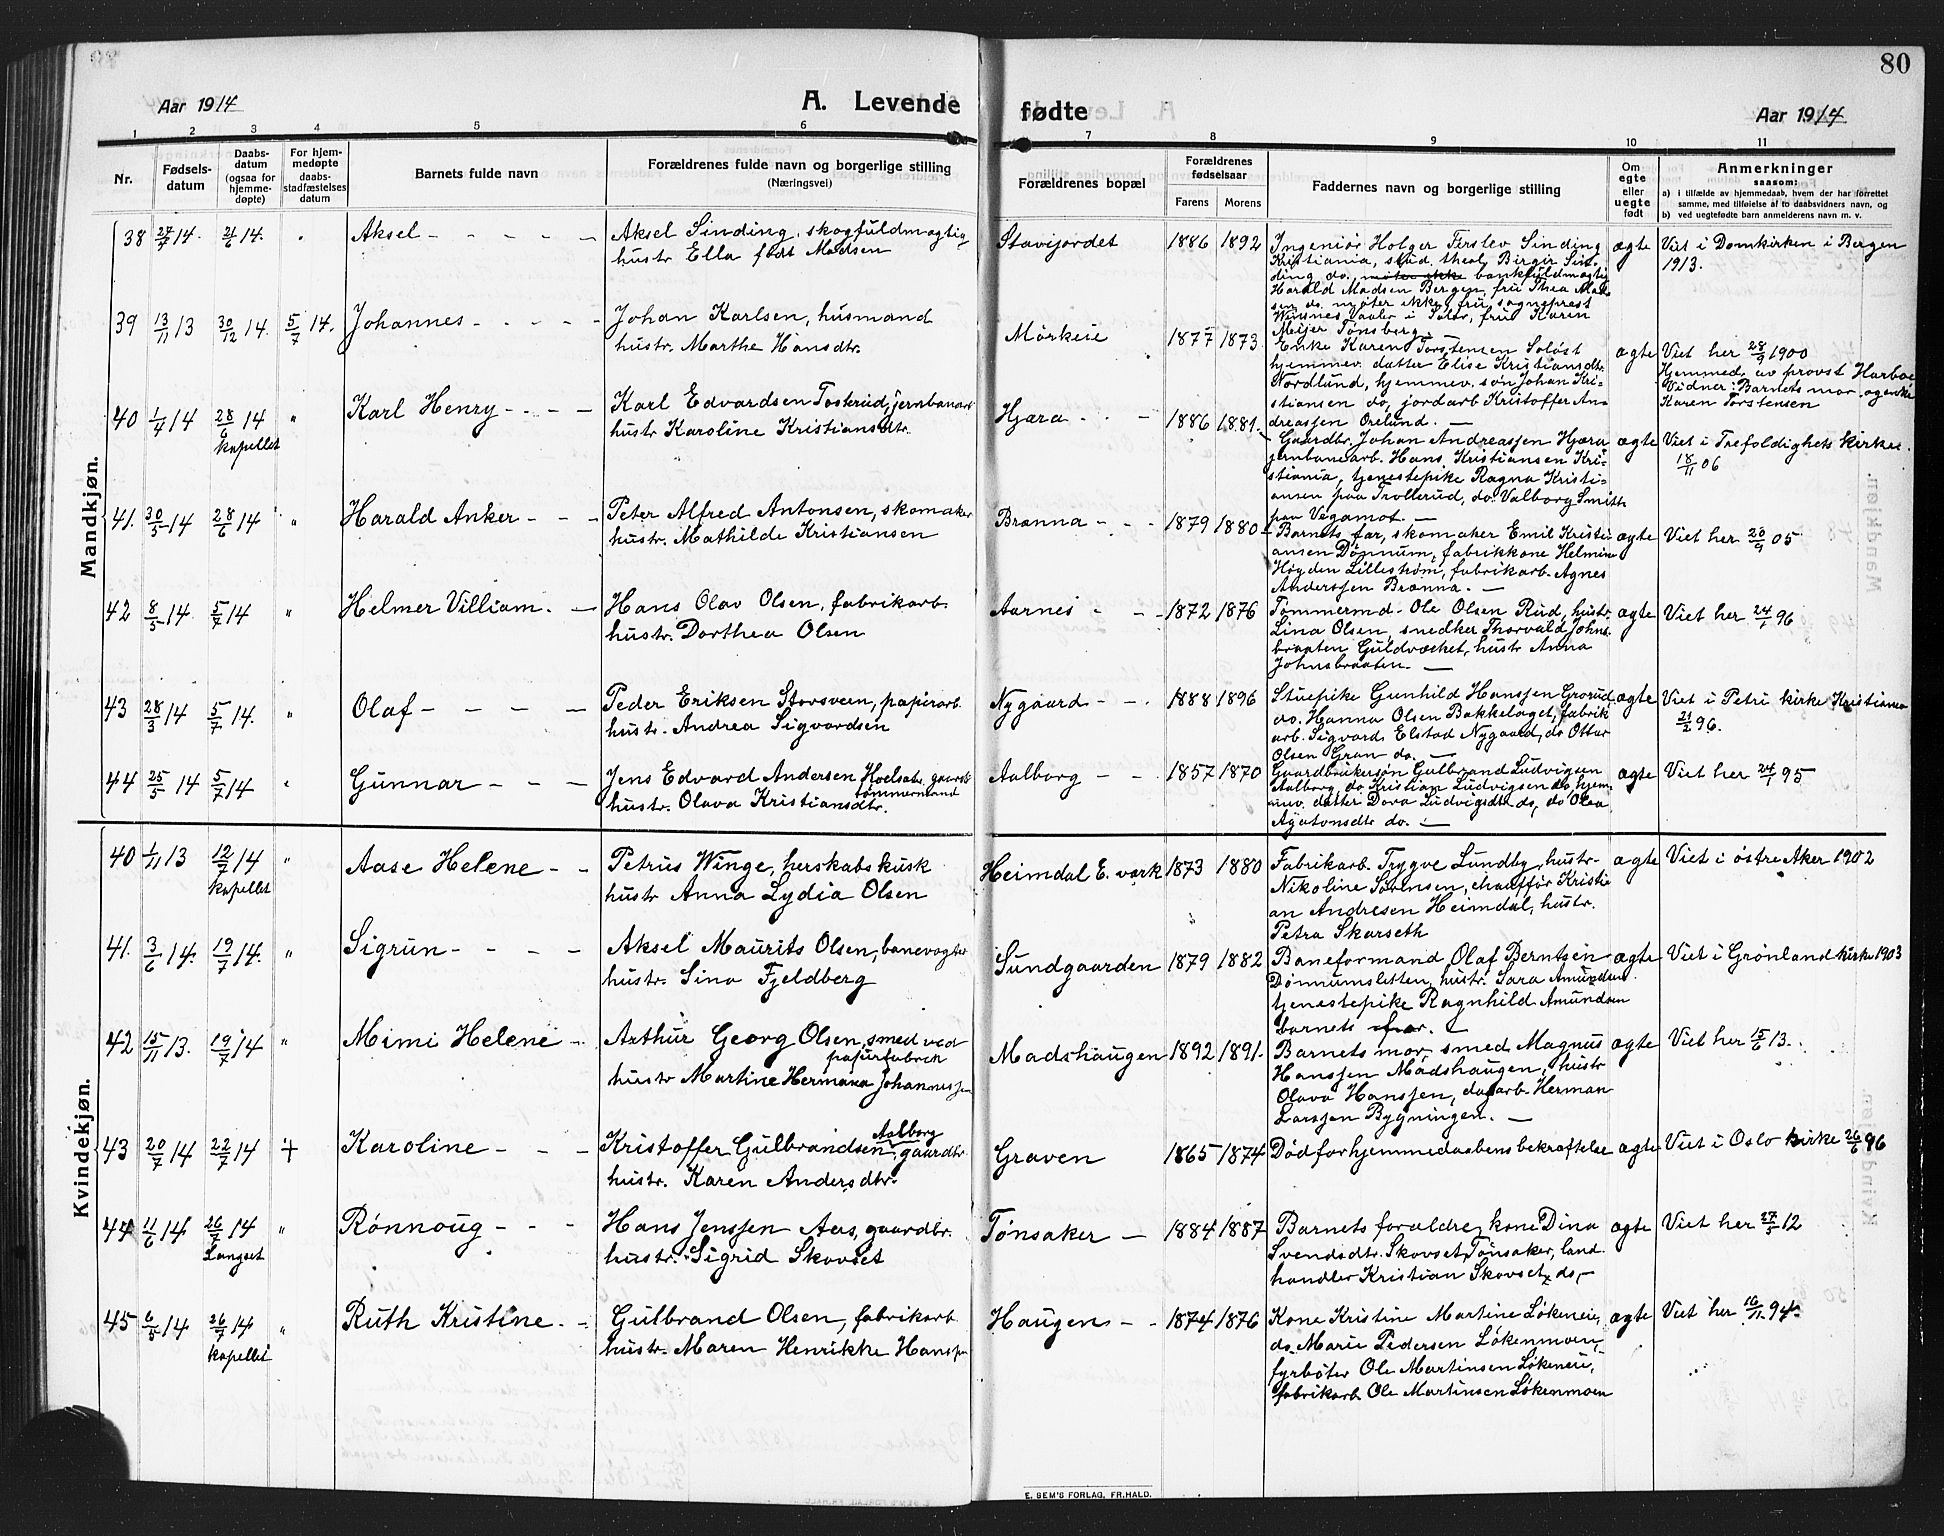 80
Aar 1914
A. Levende
fødte
Aar 1914
1 2 3 4 5 6 7 8 9 10 11
Nr.
Fødsels-
datum
Daabs-
datum
(ogsaa for
hjemme-
døpte)
For hjem-
medøpte
daabs-
stadfæstelses
datum
Barnets fulde navn
Forældrenes fulde navn og borgerlige stilling
(Næringsvei)
Forældrenes bopæl
Forældrenes
fødselsaar
Farens Morens
Faddernes navn og borgerlige stilling
Om
egte
eller
uegte
født
Anmerkninger
saasom:
a) i tilfælde av hjemmedaab, hvem der har forrettet
samme, med tilføielse af to daabsvidners navn, og
b) ved uegtefødte barn anmelderens navn m. v.
Mandkjøn.
38 27/7 14. 21/6 14. Aksel - - - - -
Aksel Sinding, skogfuldmægtig
hustr. Ella født Madsen
Stavijordet 1886 1892
Ingeniør Holger Ferslev Sinding
Kristiania, stud. theol. Birgir Sin-
ding do, møter ikke bankfuldmægtig
Harald Madsen Bergen, fru Thea Mad-
sen do møter ikke, fru sogneprest
Winsnes Vaaler i Solør, frue Karen
Meijer Tønsberg -
ægte
Viet i Domkirken i Bergen
1913.
39 13/11 13 30/12 14. 5/7 14. Johannes - - - -
Johan Karlsen, husmand
hustr. Marthe Hansdtr.
Mørkeie 1877 1873
Enke Karen Torstensen Soløst
hjemmev. datter Elise Kristiansdtr
Nordlund, hjemmev. søn Johan Kri-
stiansen do, jordarb Kristoffer An-
dreassen Ørelund. -
ægte
Viet her 28/9 1900
Hjemmed. av provst Harboe
Vidner: Barnets mor og enke
Karen Torstensen
40 1/4 14 28/6 14 "
kapellet
Karl Henry - - - -
Karl Edvardsen Tosterud, jernbanarb
hustr Karoline Kristiansdtr.
Hjæra - - 1886 1881.
Gaardbr. Johan Andreassen Hjæra
jernbanearb. Hans Kristiansen Kri-
stiania, tjenestepike Ragna Kristi-
ansen paa Trollerud, do. Valborg Smitt
paa Vegamot. -
ægte
Viet i Trefoldighets kirke.
18/11 06
41. 30/5 14 28/6 14 " Harald Anker - - -
Peter Alfred Antonsen, skomaker
hustr. Mathilde Kristiansen
Brænna - - 1879 1880
Barnets far, skomaker Emil Kristi-
ansen Dønnum, fabrikkone Helmine
Høgden Lillestrøm, fabrikarb. Agnes
Anderssen Brænna. -
ægte Viet her 20/9 05
42 8/5 14 5/7 14 " Helmer Villiam. -
Hans Olav Olsen, fabrikarb.
hustr. Dorthea Olsen
Aarnes - - 1872 1876
Tømmermd. Ole Olsen Rud, hustr.
Lina Olsen, snedker Thorvald Johns-
braaten Guldværket, hustr Anna
Johnsbraaten. -
ægte Viet her 24/1 96
43 28/3 14 5/7 14. " Olaf - - - -
Peder Eriksen Storsveen, papirarb
hustr. Andrea Sigvardsen
Nygaard - - 1888 1896
Stuepike Gunhild Hanssen Grorud
do. Hanna Olsen Bakkelaget, fabrik
arb. Sigvard Elstad Nygaard, do Ottar
Olsen Gran do. -
ægte
Viet i Petri kirke Kristiania
21/2 96.
44 25/5 14 5/7 14 " Gunnar - - -
Jens Edvard Andersen Hoelsæt, gaardbr
tømmermand
hustr. Olava Kristiansdtr.
Aalborg - - 1857 1870
Gaardbrukersøn Gulbrand Ludvigsen
Aalborg, do Kristian Ludvigsen do, hjem-
mev. datter Dora Ludvigsdtr do, do Olea
Agatonsdtr do. -
ægte Viet her 24/1 95
Kvindekjøn.
40 1/11 13 12/7 14 "
kapellet
Aase Helene - -
Petrus Winge, herskabskusk
hustr Anna Lydia Olsen
Heimdal E. værk 1873 1880
Fabrikarb. Trygve Lundby, hustr.
Nikoline Sørensen, chauffør Kristi-
an Andresen Heimdal, hustr.
Petra Skarseth
ægte Viet i østre Aker 1902
41. 3/6 14. 19/7 14. " Sigrun - - - -
Aksel Maurits Olsen, banevogter
hustr. Sina Fjeldberg
Sundgaarden 1879 1882
Baneformand Olaf Berntsen
Dønnumsletten, hustr. Sara Amundsen
tjenestepike Ragnhild Amundsen
barnets far.
ægte Viet i Grønland kirke 1903
42 15/11 13. 19/7 14 " Mimi Helene -
Arthur Georg Olsen, smed ved
papirfabrik
hustr Martine Hermana Johannessen
Madshaugen 1892 1891.
Barnets mor, smed Magnus
Hanssen Madshaugen, hustr
Olava Hanssen, dagarb. Herman
Larssen Bygningen. -
ægte Viet her 15/6 13.
43 20/7 14 22/7 14 + Karoline - - -
Aalborg
Kristoffer Gulbrandsen, gaardbr.
hustr. Karen Andersdtr.
Graven 1865 1874
Død før hjemmedaabens bekræftelse
ægte Viet i Oslo kirke 26/6 96
44 11/6 14 26/7 14 "
Langset
Rønnoug - - -
Hans Jenssen Aas, gaardbr.
hustr. Sigrid Skovset
Tønsaker - 1884 1887
Barnets forældre, kone Dina
Svendsdtr. Skovset Tønsaker, land-
handler Kristian Skovset, do, -
ægte Viet her 27/5 12
45 6/5 14 26/7 14 "
kapellet
Ruth Kristine - -
Gulbrand Olsen, fabrikarb
hustr. Maren Henrikke Hanssen
Haugen - - 1874 1876
Kone Kristine Martine Løkeneie,
do Marie Pedersen Løkenmoen,
fyrbøter Ole Martinsen Løkeneie,
fabrikarb Ole Martinsen Løkenmoen
ægte Viet her 16/11 94.
E. SEM'S FORLAG, FR.HALD.